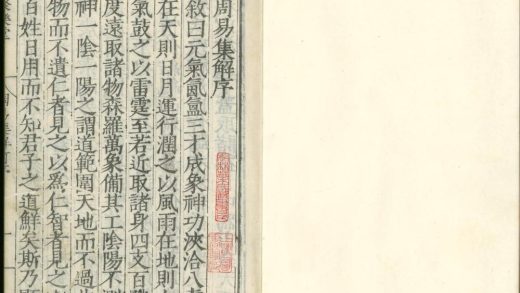 周易集解序
敘曰元氣氤氳三才成象神功浹洽八
在天則日月運行潤之以風雨在地則
氣鼓之以雷霆至若近取諸身四支百
度遠取諸物森羅萬象備其工陰陽不
神一陰一陽之謂道範圍天地而不過
物而不遺仁者見之以爲仁智者見之
百姓日用而不知君子之道鮮矣斯乃